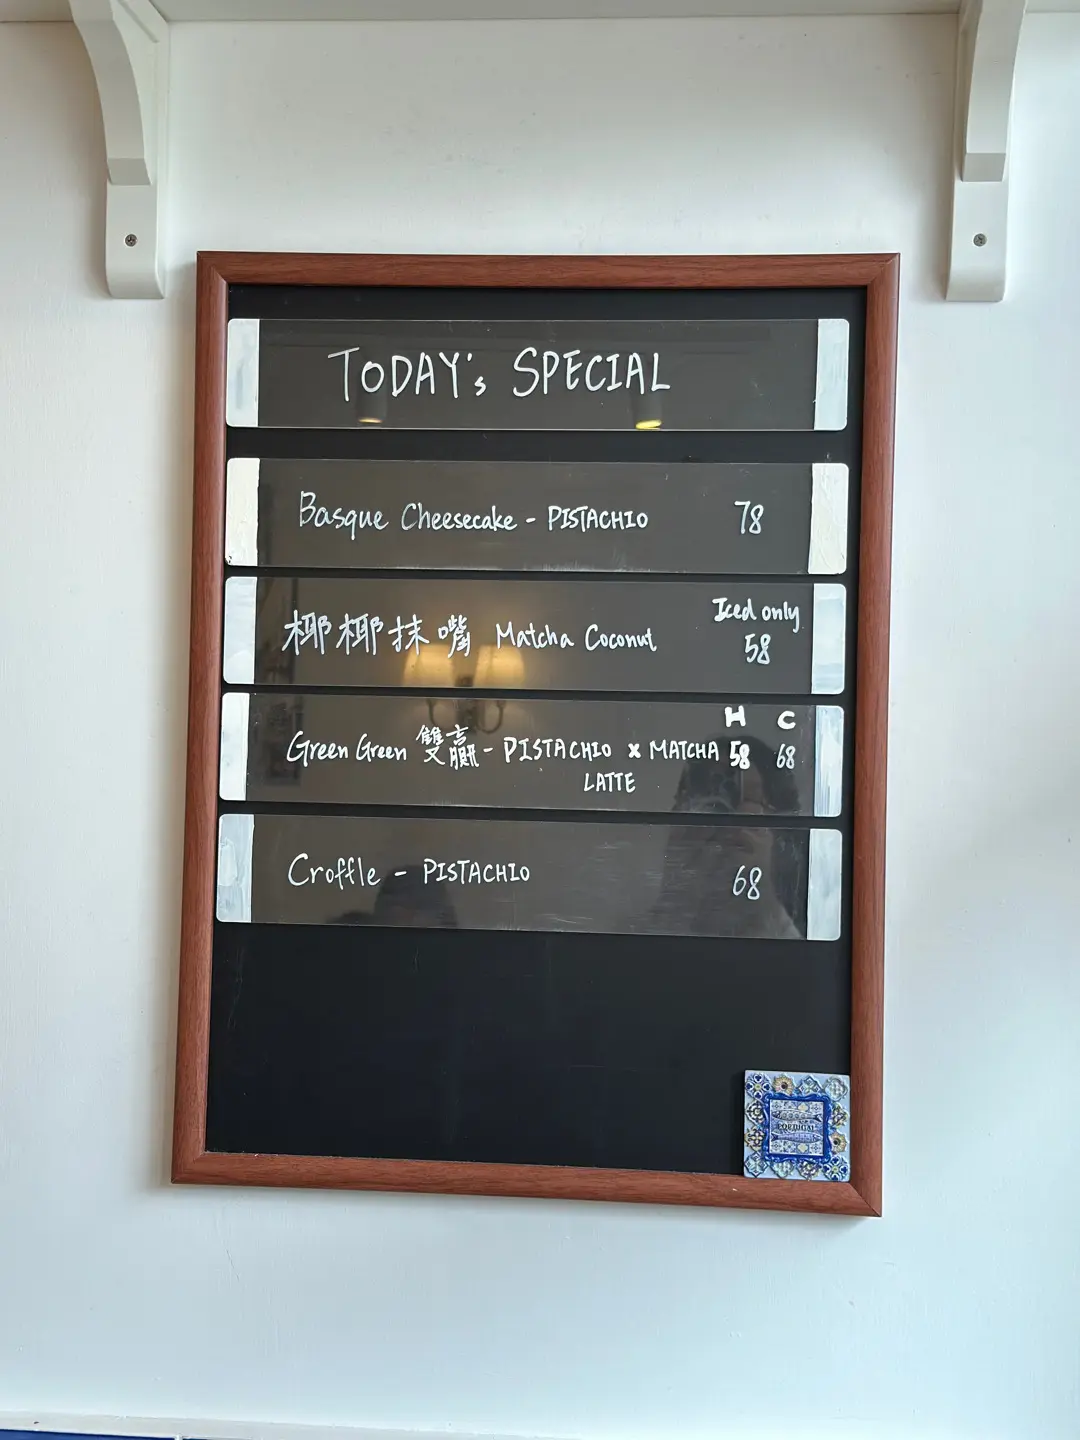 TODAY's SPECIAL
Basque Cheesecake - PISTACHIO 78
椰椰抹嘴 Matcha Coconut Iced only 58
H C
Green Green 雙贏 - PISTACHIO x MATCHA 58 68
LATTE
Croffle - PISTACHIO 68
PORTUGAL